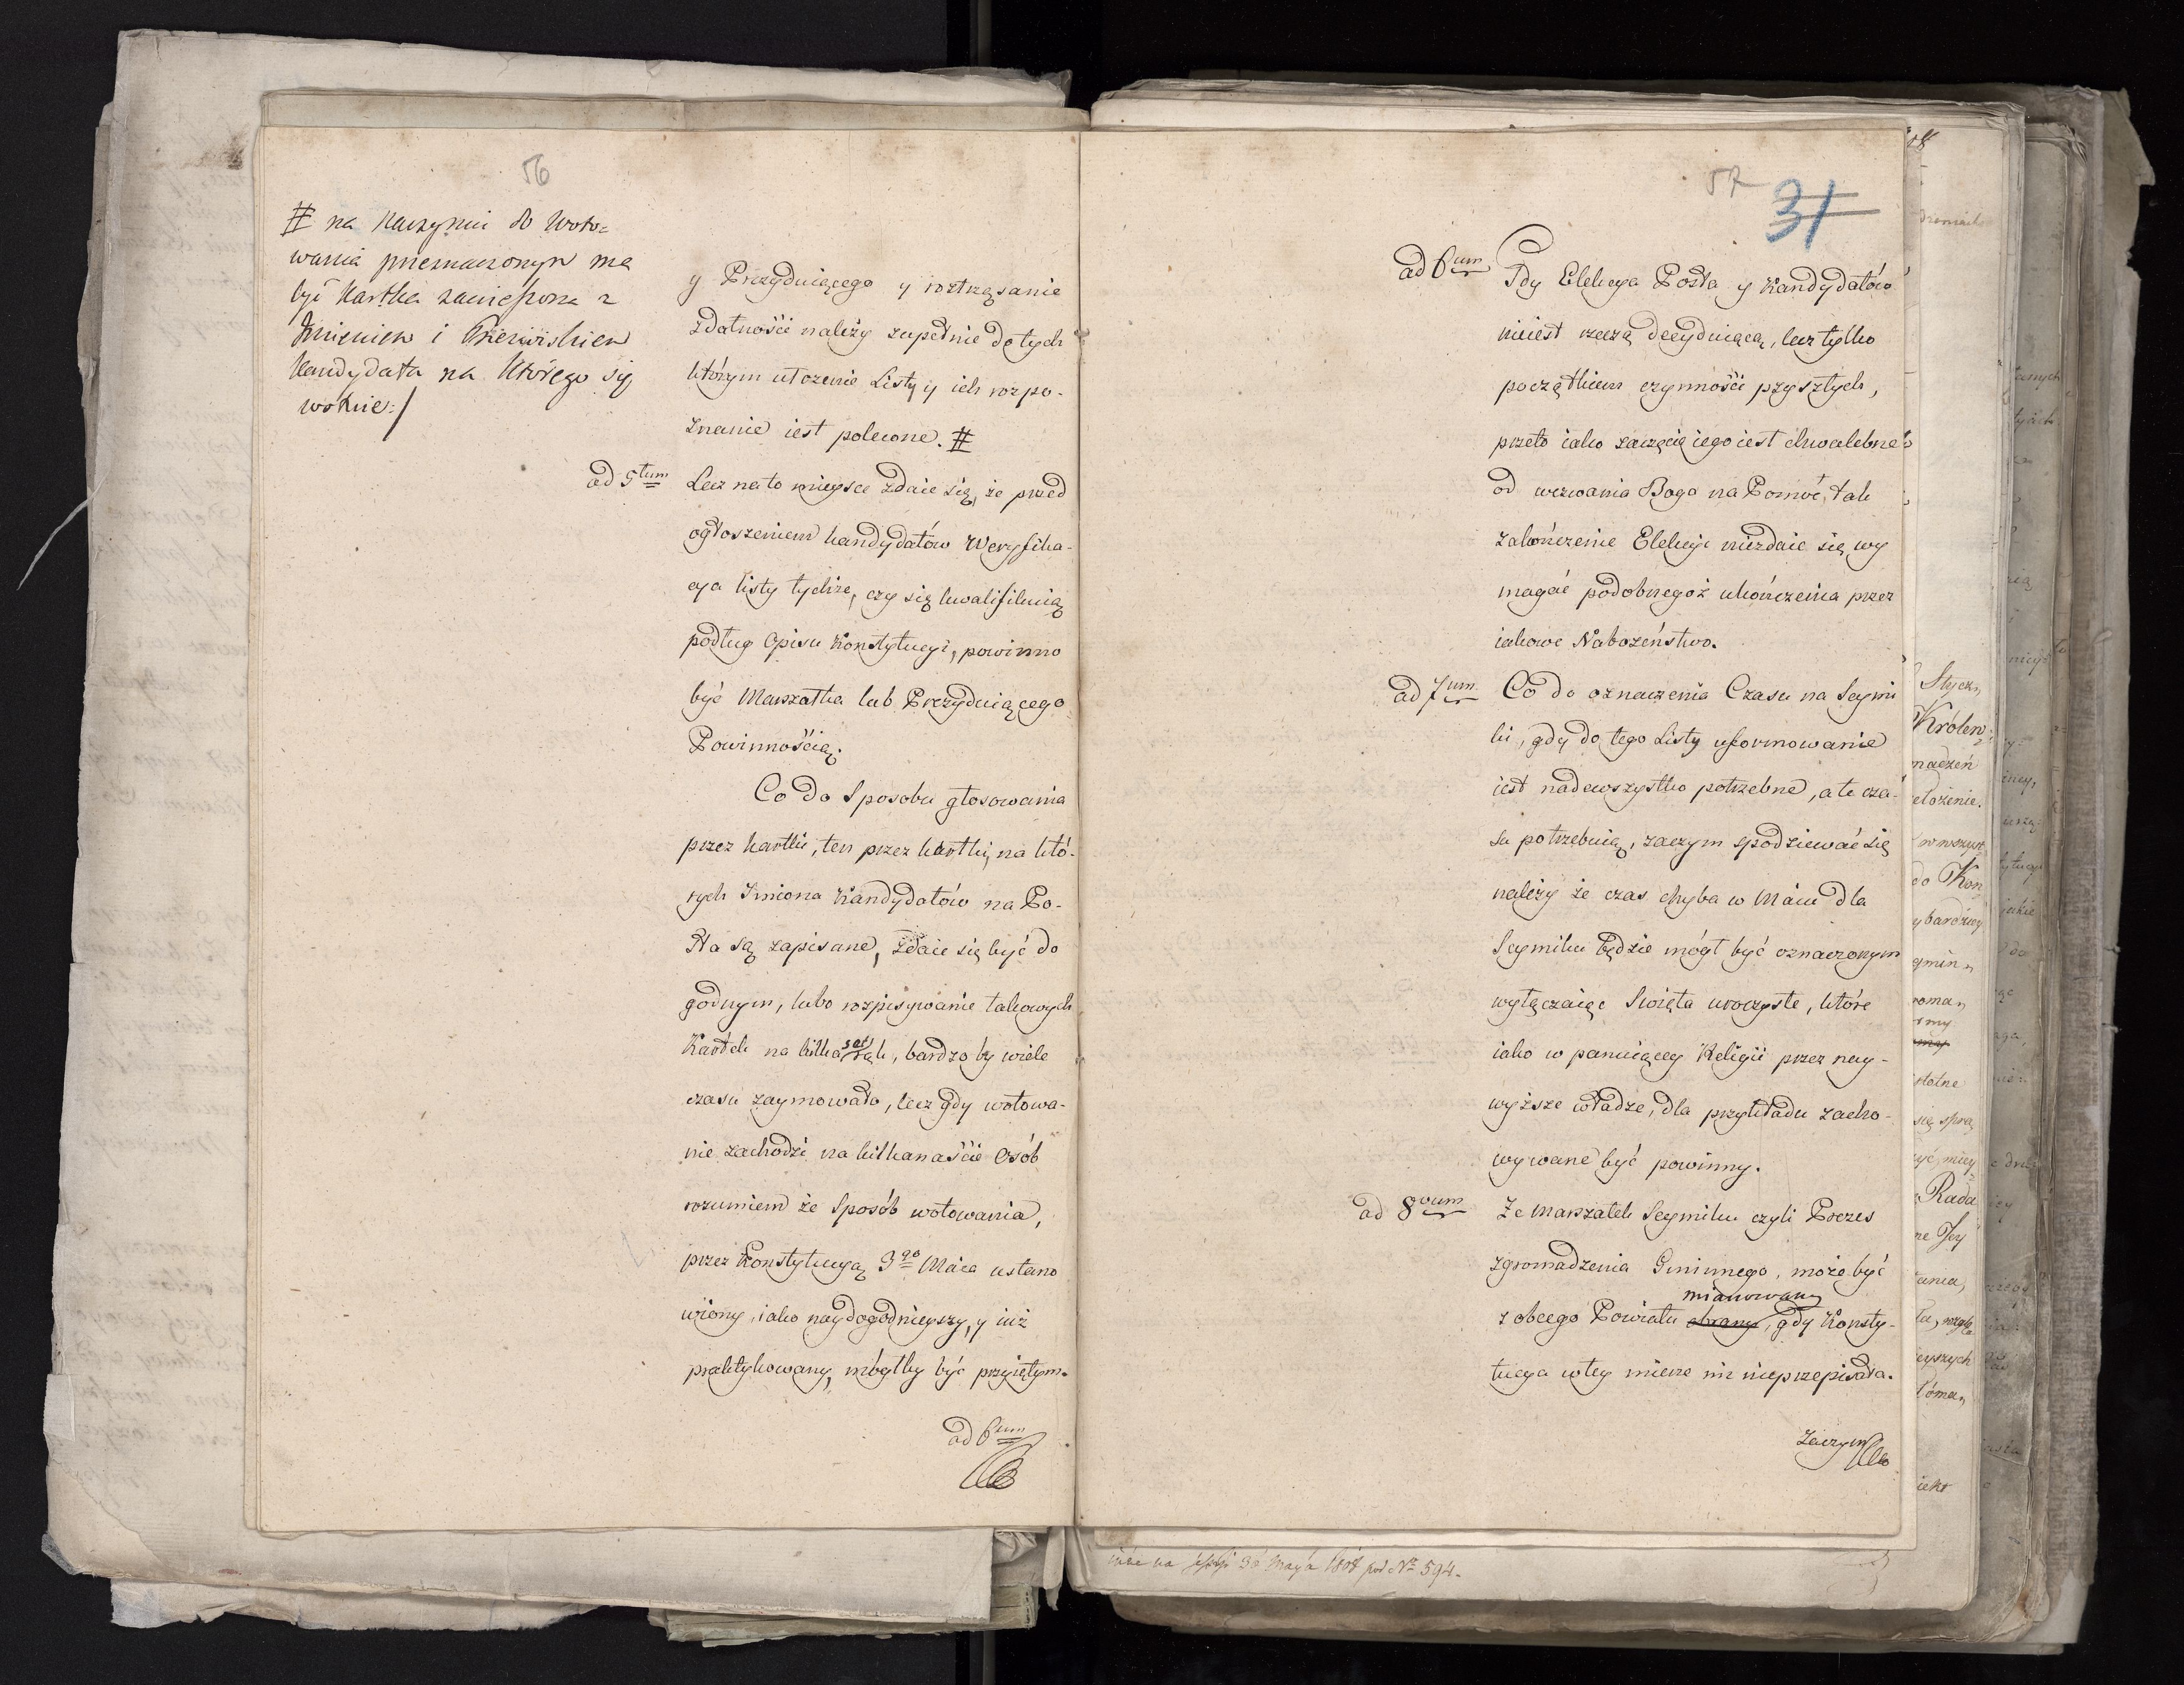 56
# na naczyniu do woto=
wania przeznaczonym ma
być kartka zawieszona z
Imieniem i Przezwiskiem
kandydata na którego się
wotuie:/
y Prezyduiącego y roztrząsanie
zdatności należy zupełnie do tych
którym utożenie Listy y ich rozpo-
znanie iest polecone. #
ad 5tum Lecz na to mieysce zdaie się, że przed
ogłoszeniem kandydatów Weryfika-
cya listy tychże, czy się kwalifikuią
podług Opisu Konstytucyi, powinno
być Marszałka lub Prezyduiącego
Powinnością.
Co do Sposobu głosowania
przez kartki, ten przez kartki, na któ-
rych Imiona Kandydatów na Po-
sła są zapisane, zdaie się być do
godnym, lubo rozpisywanie takowych
Kartek na kilka set rąk, bardzo by wiele
czasu zaymowało, lecz gdy wotowa-
nie zachodzi na kilkanaście Osób
rozumiem że Sposób wotowania,
przez Konstytucyą 3go Maia ustano
wiony, iako naydogodnieyszy, y iuż
praktykowany, mógłby być przyiętym.
ad 6um
57
31
ad 6um Gdy Elekcya Posła y Kandydatów
nieiest rzeczą decyduiącą, lecz tylko
początkiem czynności przyszłych,
przeto iako zaczęcie iego iest chwalebne
od wezwania Boga na Pomoc, tak
zakończenie Elekcyi niezdaie się wy
magać podobnegoż ukończenia przez
iakowe Nabożeństwo.
ad 7um Co do oznaczenia Czasu na Seymi
ki, gdy do tego Listy uformowanie
iest nadewszystko potrzebne, a te cza-
su potrzebuią, zaczym spodziewać się
należy że czas chyba w Maiu dla
Seymiku będzie mógł być oznaczonym
wyłączaiąc Swięta uroczyste, które
iako w panuiącey Religii przez nay-
wyższe władze, dla przykładu zacho-
wywane być powinny.
ad 8vum Ze Marszałek Seymiku czyli Prezes
zgromadzenia Gminnego, może być
mianowany
z obcego Powiatu obrany, gdy Konsty-
tucya w tey mierze nic nieprzepisała.
Zaczym
na sessyi 30 Maya 1808 pod No 594.
Stycz,
Królew
do Kon
Rada